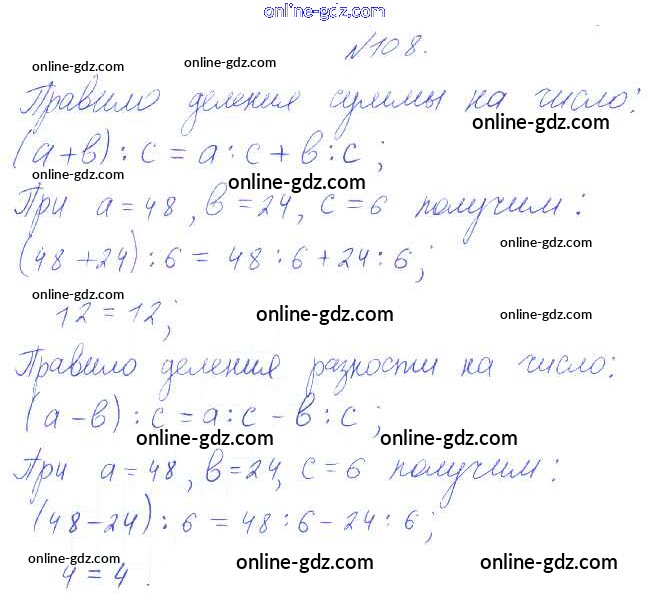 online-gdz.com
№108.
online-gdz.com online-gdz.com
Правило деления суммы на число:
online-gdz.com
(а+в):с=а:с+в:с;
online-gdz.com
При а=48, в=24, с=6 получим:
online-gdz.com
(48+24):6=48:6+24:6;
online-gdz.com
12=12;
online-gdz.com online-gdz.com
Правило деления разности на число:
(а-в):с=а:с-в:с;
online-gdz.com online-gdz.com
При а=48, в=24, с=6 получим:
online-gdz.com
(48-24):6=48:6-24:6;
online-gdz.com online-gdz.com online-gdz.com
4=4.